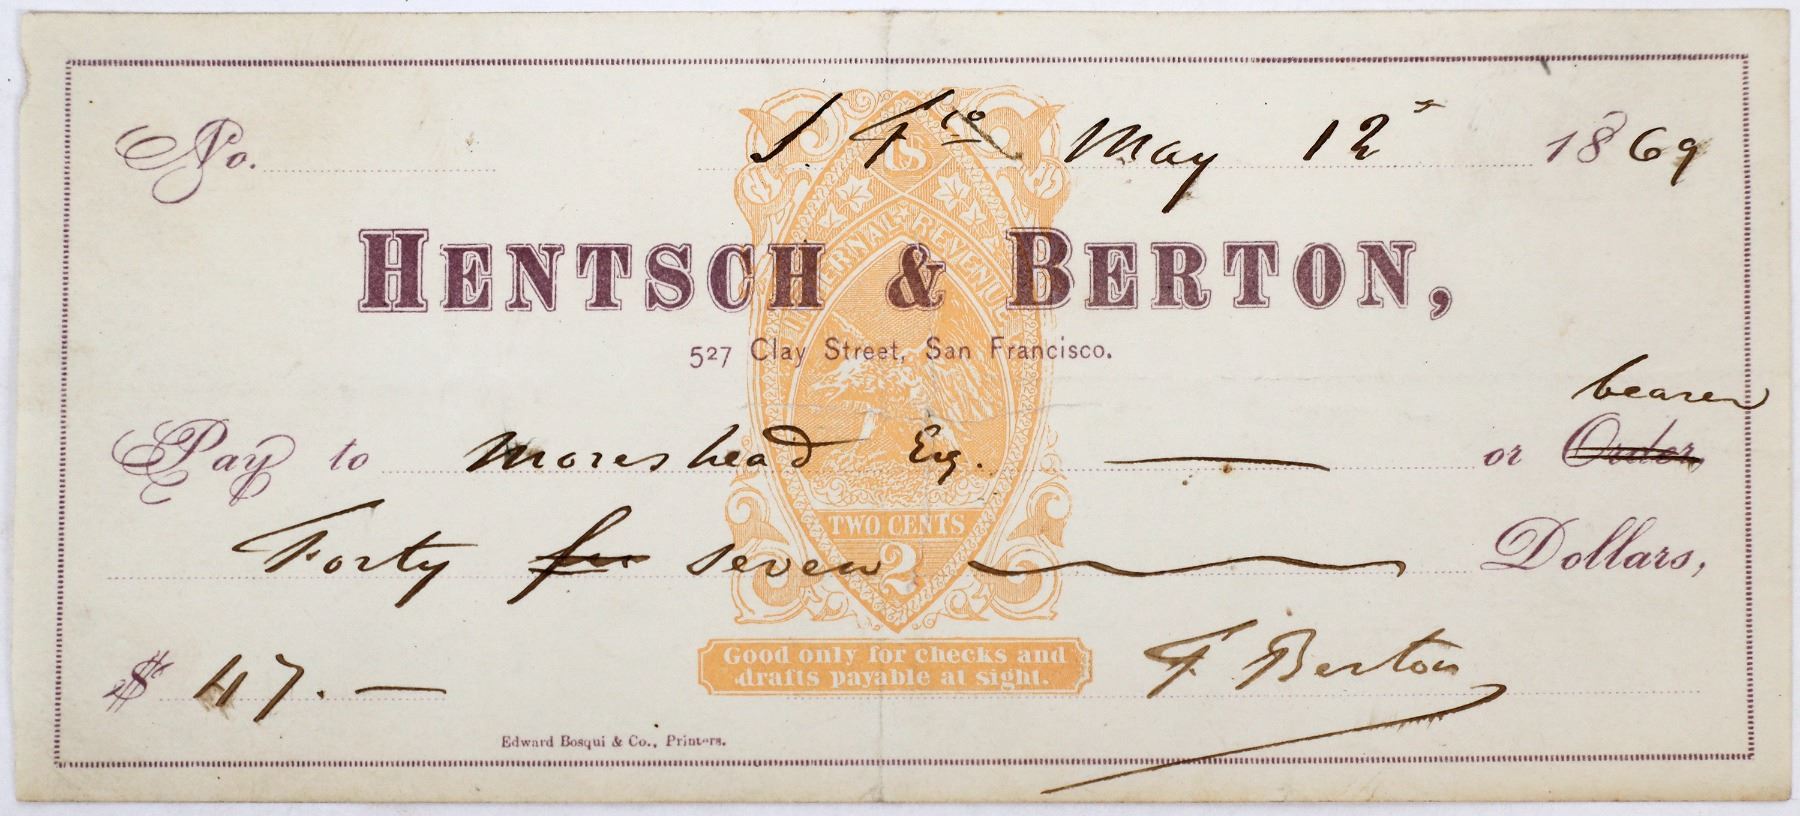 No. S. Fco May 12 1869
US
INTERNAL REVENUE
HENTSCH & BERTON,
527 Clay Street, San Francisco.
bearer
Pay to Moreshead Esq. — or Order,
Forty seven Dollars,
TWO CENTS
2
$ 47. —
Good only for checks and
drafts payable at sight.
F. Berton
Edward Bosqui & Co., Printers.